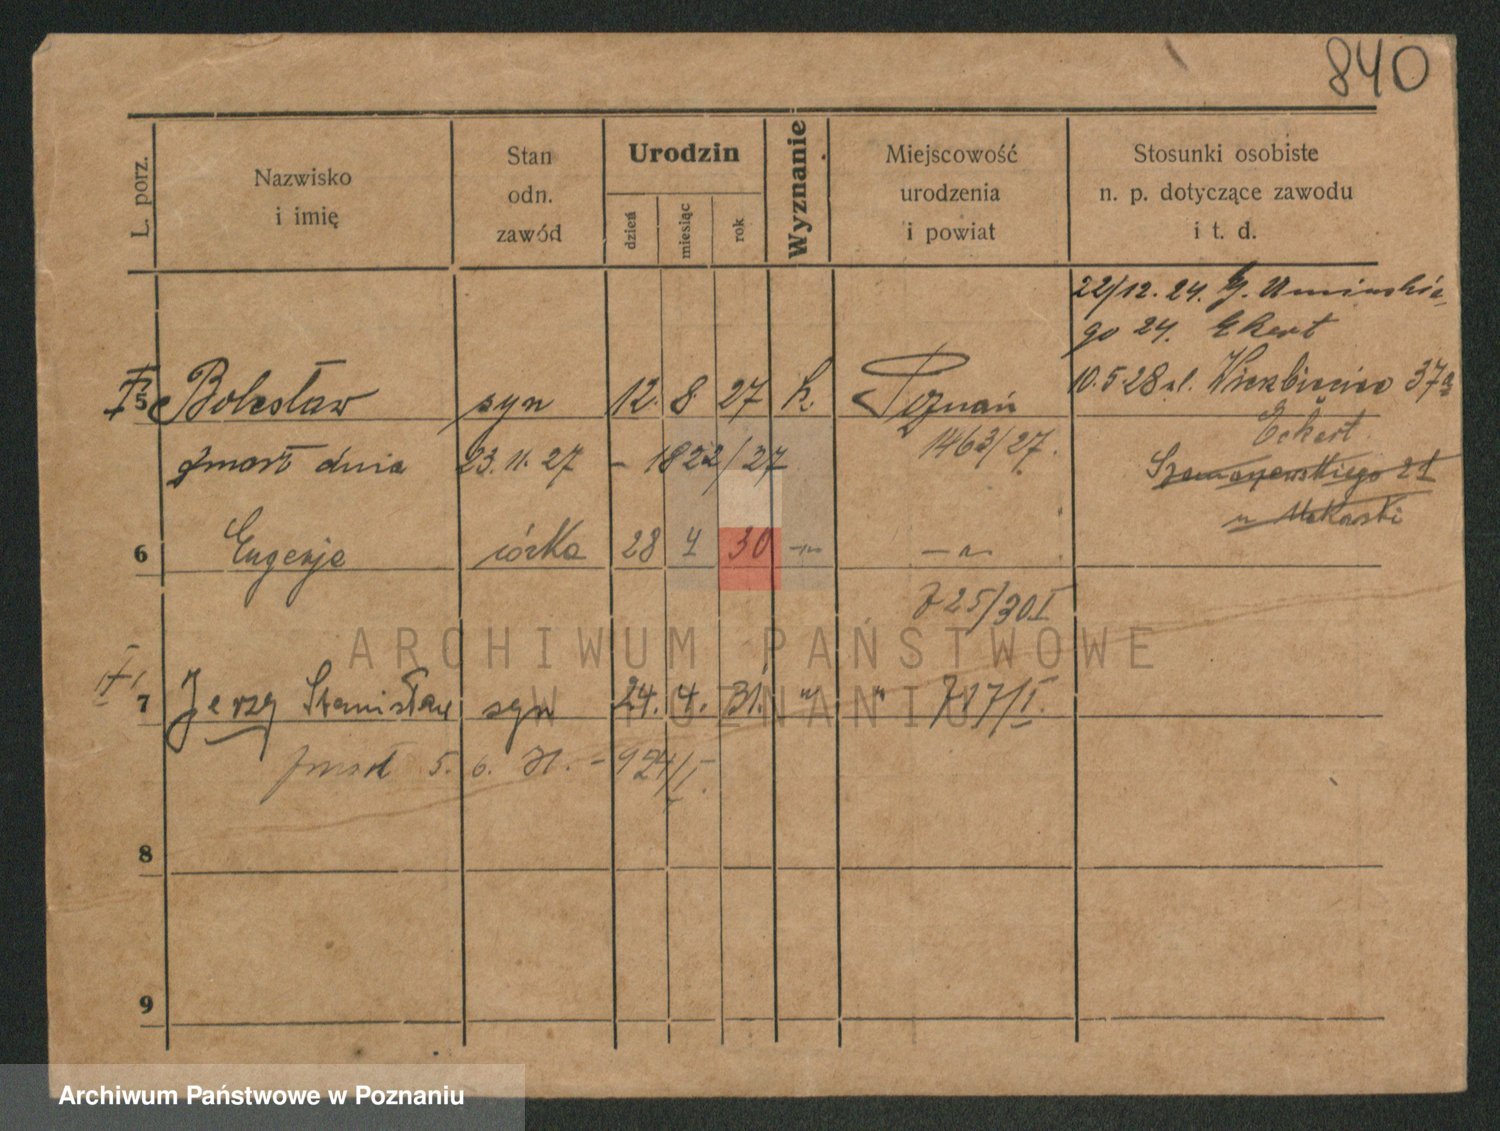 840
L. porz.
Nazwisko
i imię
Stan
odn.
zawód
Urodzin
dzień
miesiąc
rok
Wyznanie
Miejscowość
urodzenia
i powiat
Stosunki osobiste
n. p. dotyczące zawodu
i t. d.
22/12. 24. G. Umińskie-
go 24. Ekert
10.5.28 ul. Wierzbięcice 37a
Eckert
21
5 Bolesław syn 12. 8. 27 k. Poznań
1463/27.
zmarł dnia 23. 11. 27 - 1822/27
6 Eugenja córka 28 4 30 -"- -"-
725/30 I
7 Jerzy Stanisław syn 24. 4. 31. " " 717/I.
zmarł 5. 6. 31. - 924/I.
8
9
ARCHIWUM PAŃSTWOWE
W POZNANIU
Archiwum Państwowe w Poznaniu